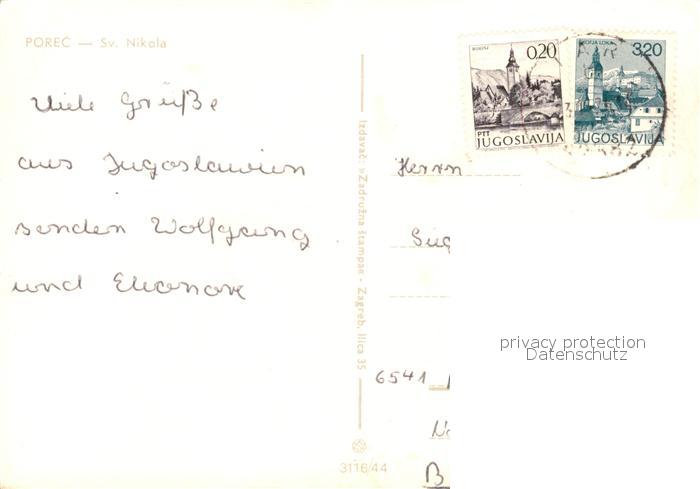 POREČ — Sv. Nikola
Viele Grüße
aus Jugoslawien
senden Wolfgang
und Eleonore
Izdavač: »Zadružna štampa« - Zagreb, Ilica 35
3116/44
BOHINJ
0,20
PTT
JUGOSLAVIJA
ŠKOFJA LOKA
3,20
JUGOSLAVIJA
Herrn
6541
B
privacy protection
Datenschutz